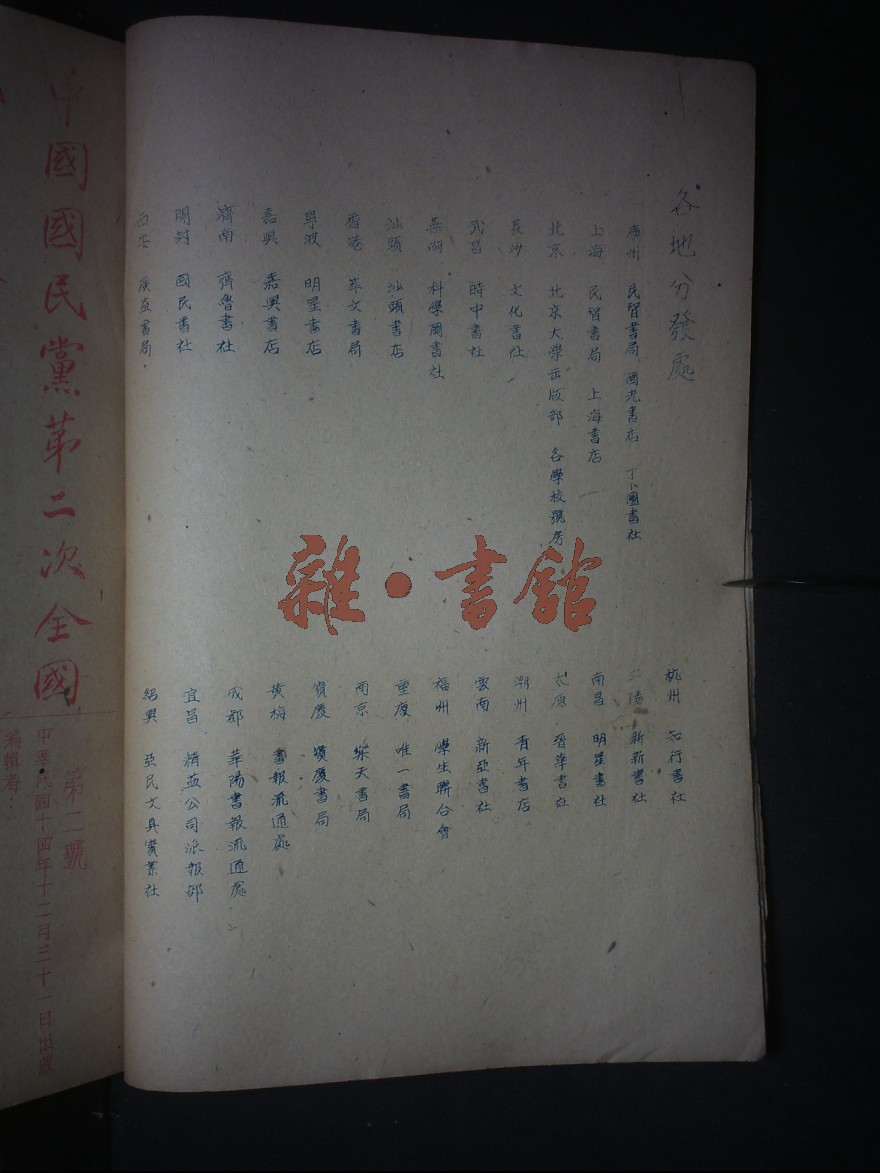 各地分發處
廣州 民智書局 國光書店 丁卜圖書社
上海 民智書局 上海書店
北京 北京大學出版部 各學校號房
長沙 文化書社
武昌 時中書社
蕪湖 科學圖書社
汕頭 汕頭書店
香港 萃文書局
寧波 明星書店
嘉興 嘉興書店
濟南 齊魯書社
開封 國民書社
西安 廣益書局
杭州 知行書社
陽 新新書社
南昌 明星書社
太原 晋華書社
潮州 青年書店
雲南 新亞書社
福州 學生聯合會
重慶 唯一書局
南京 樂天書局
寶慶 寶慶書局
黄梅 書報流通處
成都 華陽書報流通處
宜昌 精益公司派報部
紹興 亞民文具實業社
中國國民黨第二次全國
第二號
中華民國十四年十二月三十一日出版
編輯者：
雜·書館